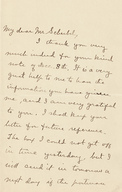 My dear Mr. Sebold,
I thank you very
much indeed for your kind
note of Dec. 8th. It is a very
great help to me to have the
information you have given
me, and I am very grateful
to you. I shall keep your
letter for future reference.
The box I could not get off
in time yesterday, but I
will send it to
next day of this